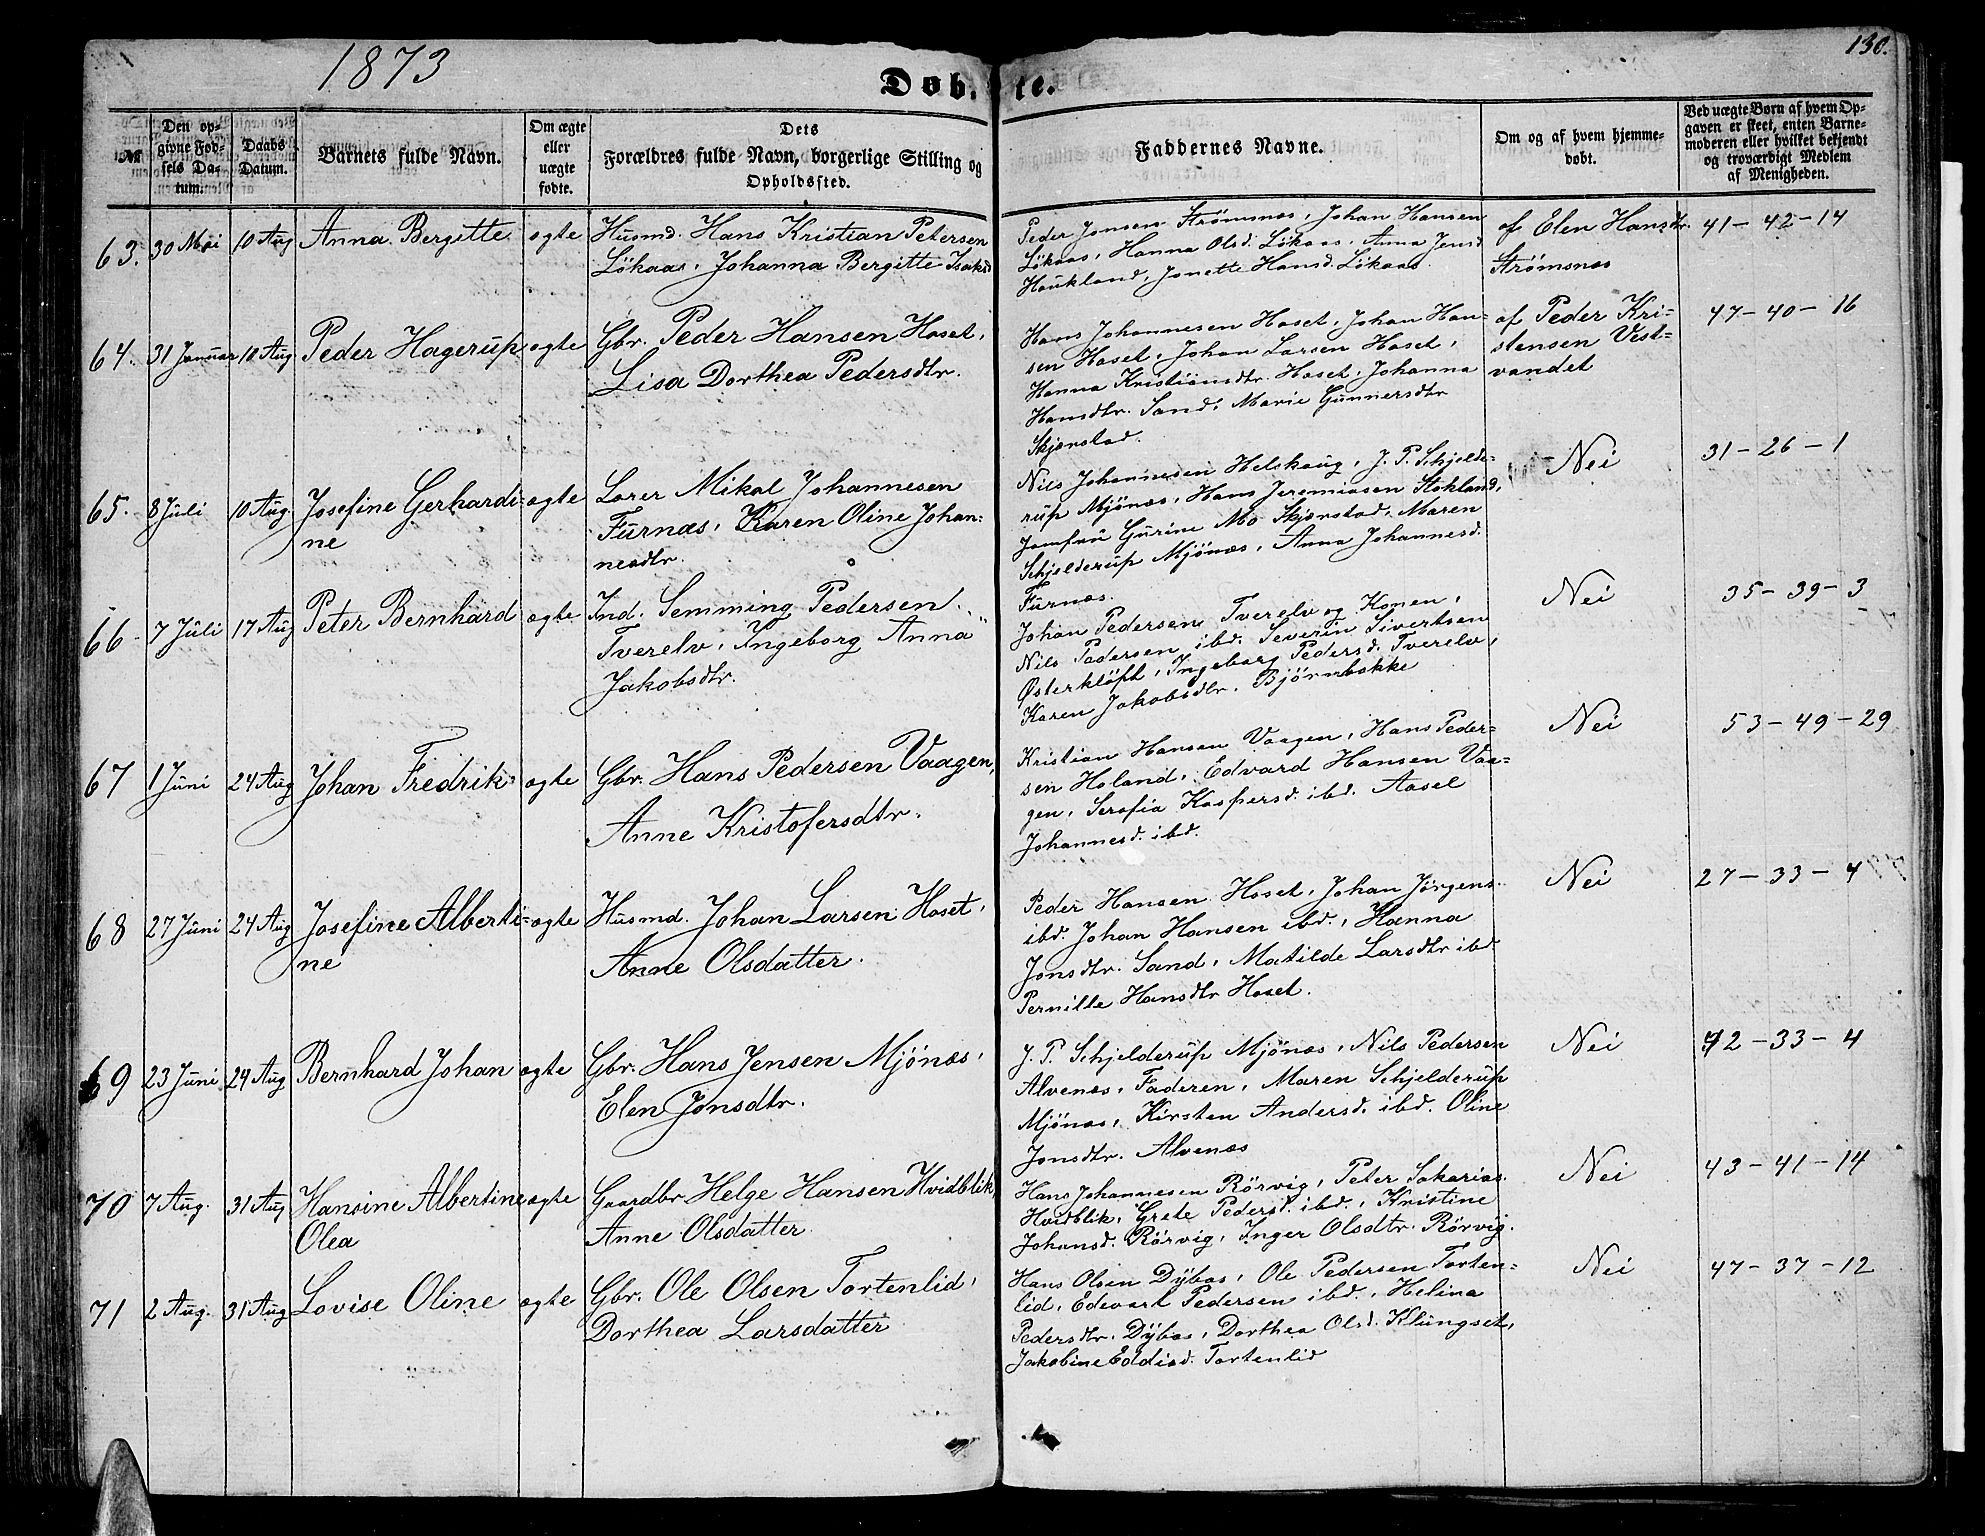 1873
130.
Døb-te.
№
Den op-
givne Fød-
sels Da-
tum.
Daabs
Datum.
Barnets fulde Navn.
Om ægte
eller
uægte
fødte.
Dets
Forældres fulde Navn, borgerlige Stilling og
Opholdssted.
Faddernes Navne.
Om og af hvem hjemme-
døbt.
Ved uægte Børn af hvem Op-
gaven er skeet, enten Barne-
moderen eller hvilket bekjendt
og troværdigt Medlem
af Menigheden.
63. 30 Mai 10 Aug Anna Bergitte ægte
Husmd. Hans Kristian Petersen
Løkaas, Johanna Bergitte Isaksd
Peder Jonsen Strømsnæs, Johan Hansen
Løkaas, Hanna Olsd. Løkaas, Anna Jensd
Haukland, Jonette Hansd. Løkaas
af Elen Hansdtr.
Strømsnæs
41-42-14
64. 31 Januar 10 Aug Peder Hagerup ægte
Gbr. Peder Hansen Hoset,
Lisa Dorthea Pedersdtr.
Hans Johannesen Hoset, Johan Han-
sen Hoset, Johan Larsen Hoset,
Hanna Kristiansdtr. Hoset, Johanna
Hansdtr. Sand, Marie Gunnersdtr
Skjønstad.
af Peder Kri-
stensen Vest-
vandet
47-40-16
65. 8 Juli 10 Aug. Josefine Gerhardi-
ne
ægte
Lærer Mikal Johannesen
Furnæs, Karen Oline Johan-
nesdtr.
Nils Johannesen Helskaug, J. P. Schjelde-
rup Mjönæs, Hans Jeremiasen Stokland,
Jomfru Gurine Mo Skjønstad, Maren
Schjelderup Mjönæs, Anna Johannesd.
Furnæs.
Nei
31-26-1
66. 7 Juli 17 Aug Peter Bernhard ægte
Ind. Semming Pedersen
Tverelv, Ingeborg Anna
Jakobsdtr.
Johan Pedersen Tverelv og Konen,
Nils Pedersen ibd. Severin Sivertsen
Østerkløft, Ingeborg Pedersd. Tverelv,
Karen Jakobsdtr. Björnbakke
Nei
35-39-3
67 1 Juni 24 Aug Johan Fredrik ægte
Gbr. Hans Pedersen Vaagen,
Anne Kristofersdtr.
Kristian Hansen Vaagen, Hans Peder-
sen Holand, Edvard Hansen Vaa-
gen, Serafia Kaspersd. ibd. Aasel
Johannesd. ibd.
Nei
53-49-29
68 27 Juni 24 Aug Josefine Alberti-
ne
ægte
Husmd. Johan Larsen Hoset,
Anne Olsdatter.
Peder Hansen Hoset, Johan Jörgens.
ibd. Johan Hansen ibd., Hanna
Jonsdtr. Sand, Matilde Larsdtr ibd
Pernille Hansdtr Hoset.
Nei
27-33-4
69 23 Juni 24 Aug Bernhard Johan ægte
Gbr. Hans Jensen Mjönæs,
Elen Jonsdtr.
J. P. Schjelderup Mjönæs, Nils Pedersen
Alvenæs, Faderen, Maren Schjelderup
Mjönæs, Kirsten Andersd. ibd. Oline
Jonsdtr. Alvenæs
Nei
42-33-4
70 7 Aug. 31 Aug Hansine Albertine
Olea
ægte
Gaardbr Helge Hansen Hvidblik,
Anne Olsdatter
Hans Johannesen Rörvig, Peter Sakarias.
Hvidblik, Grete Pedersd. ibd., Kristine
Johansd. Rörvig, Inger Olsdtr. Rörvig.
Nei
43-41-14
71 2 Aug. 31 Aug Lovise Oline ægte
Gbr. Ole Olsen Tortenlid,
Dorthea Larsdatter
Hans Olsen Dybos, Ole Pedersen Torten-
lid, Edevart Pedersen ibd., Helina
Pedersdtr. Dybos, Dorthea Olsd. Klungset,
Jakobine Eddisd. Tortenlid
Nei
47-37-12